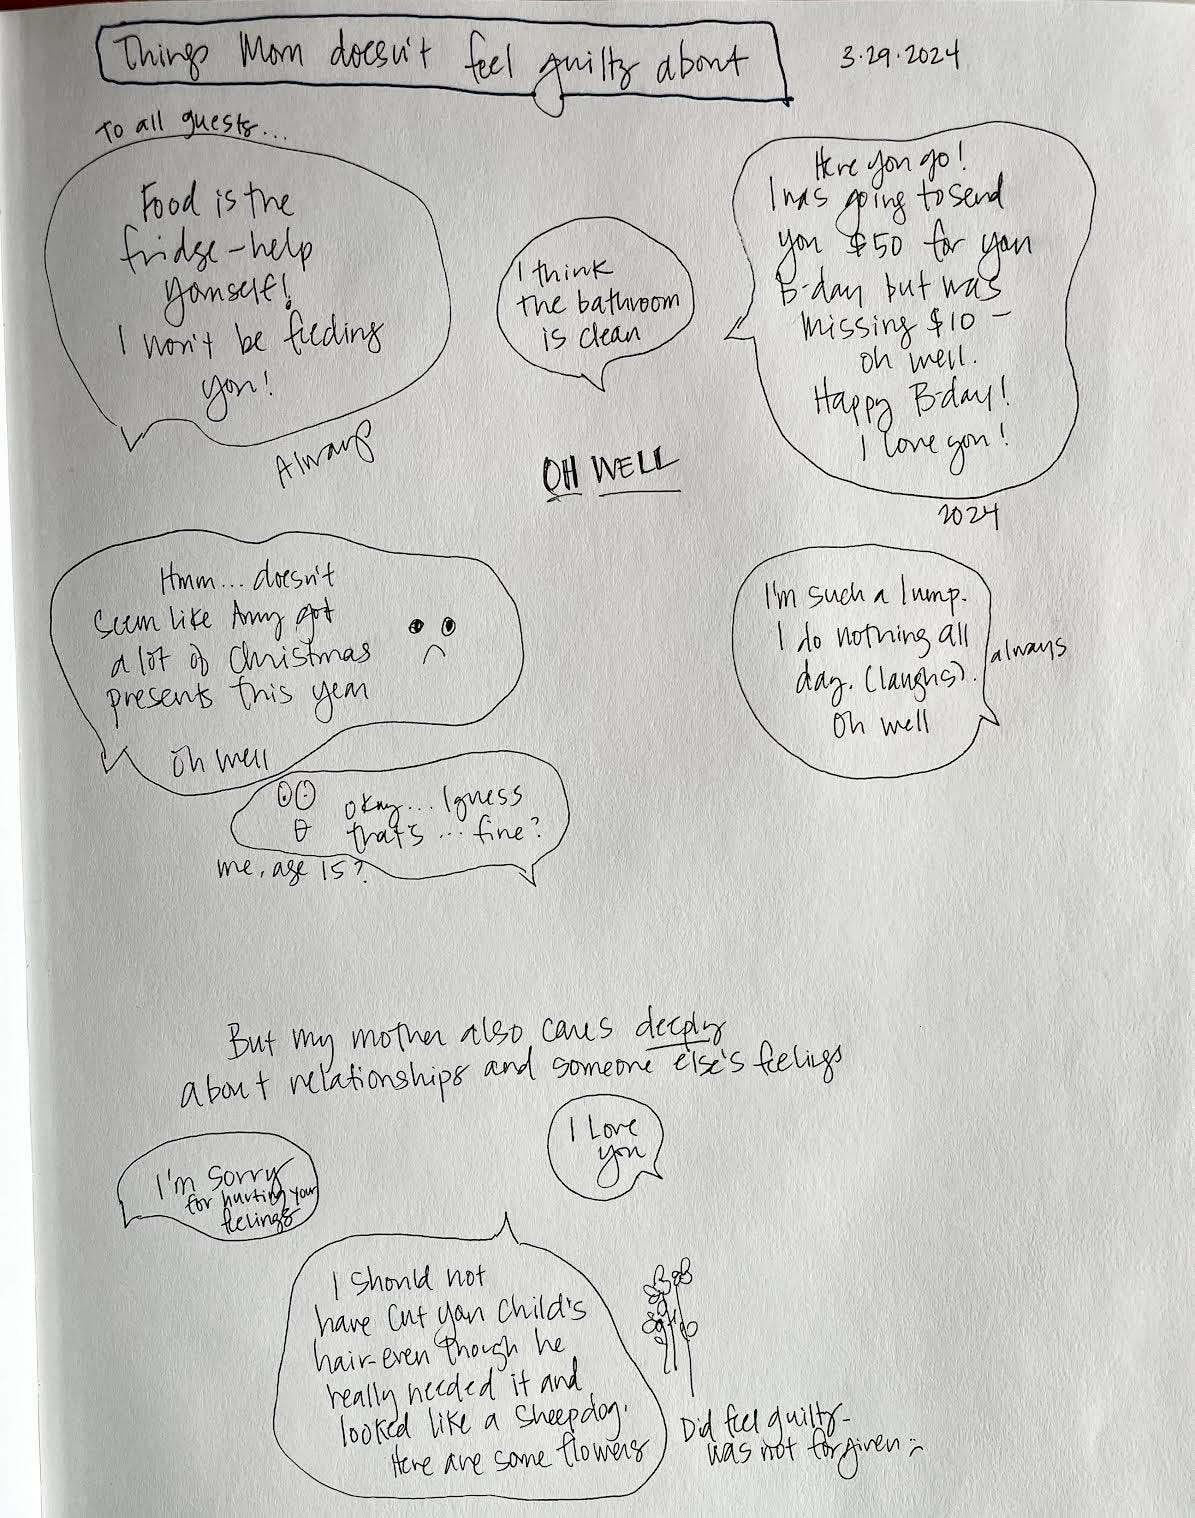 Things Mom doesn't feel guilty about
3.29.2024
To all guests...
Food is the
fridge - help
yourself!
I won't be feeding
you!
Always
I think
the bathroom
is clean
Here you go!
I was going to send
you $50 for your
B-day but was
missing $10 -
oh well.
Happy B-day!
I love you!
2024
OH WELL
Hmm... doesn't
seem like Amy got
a lot of Christmas
presents this year
oh well
okay... I guess
that's ... fine?
me, age 15?
I'm such a lump.
I do nothing all
day. (laughs).
Oh well
always
But my mother also cares deeply
about relationships and someone else's feelings
I Love
you
I'm sorry
for hurting your
feelings
I should not
have cut your child's
hair - even though he
really needed it and
looked like a sheepdog.
Here are some flowers
Did feel guilty -
was not forgiven :(